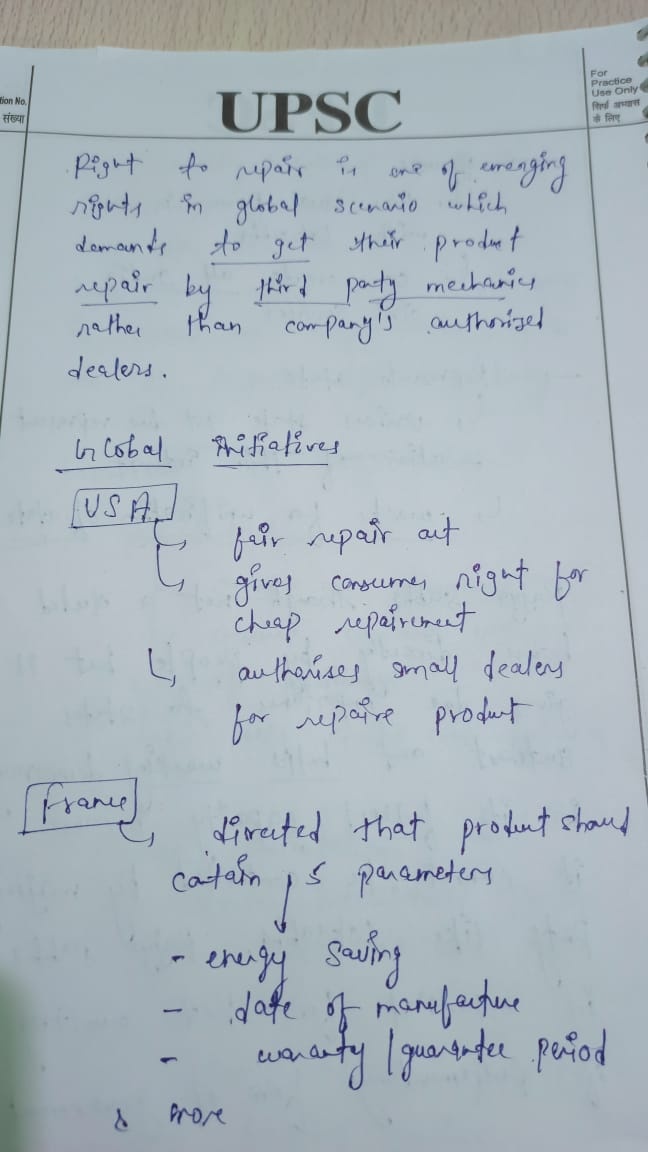 tion No.
संख्या
UPSC
For
Practice
Use Only
सिर्फ अभ्यास
के लिए
Right to repair is one of emerging
rights in global scenario which
demands to get their product
repair by third party mechanics
rather than company's authorized
dealers.
Global Initiatives
USA
fair repair act
gives consumer right for
cheap repairement
authorises small dealers
for repaire product
France
directed that product should
contain 5 parameters
- energy saving
- date of manufacture
- waranty / guarantee period
& more